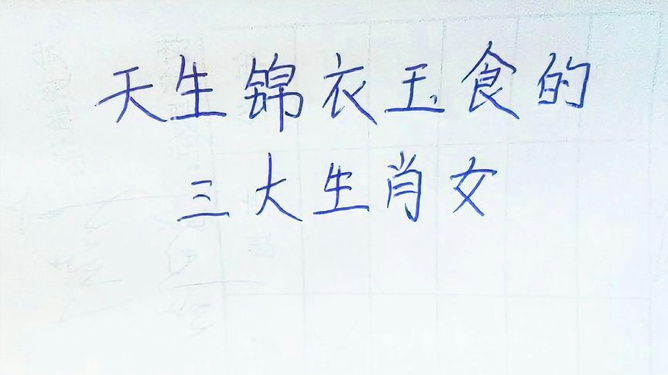 天生锦衣玉食的
三大生肖女